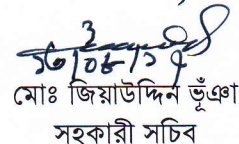 মোঃ জিয়াউদ্দিন ভূঁঞা
সহকারী সচিব